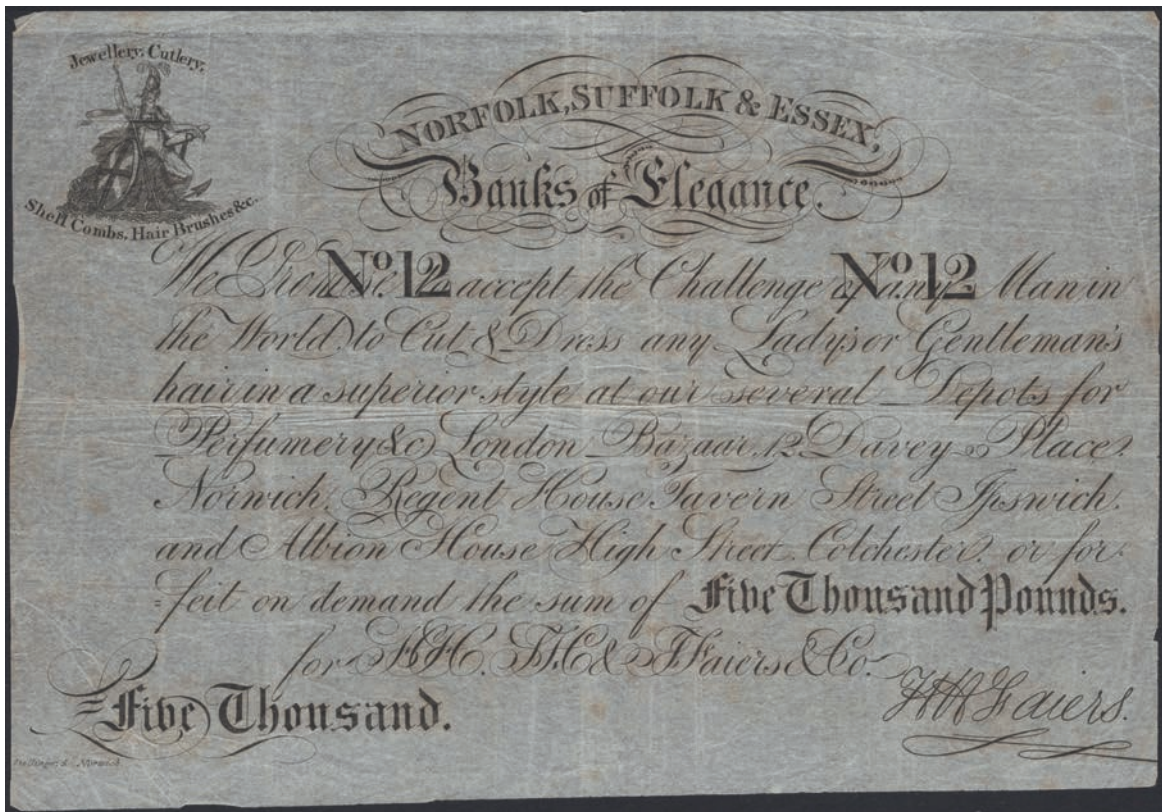 Jewellery, Cutlery,
Shell Combs, Hair Brushes &c.
NORFOLK, SUFFOLK & ESSEX,
Banks of Elegance.
No. 12 No. 12
We Promise to accept the Challenge of any Man in
the World, to Cut & Dress any Lady's or Gentleman's
hair in a superior style at our several Depots for
Perfumery &c, London Bazaar, 12 Davey Place,
Norwich, Regent House, Tavern Street Ipswich,
and Albion House High Street, Colchester, or for-
=feit on demand the sum of Five Thousand Pounds.
for Faiers & Co.
Five Thousand.
Faiers.
Norwich